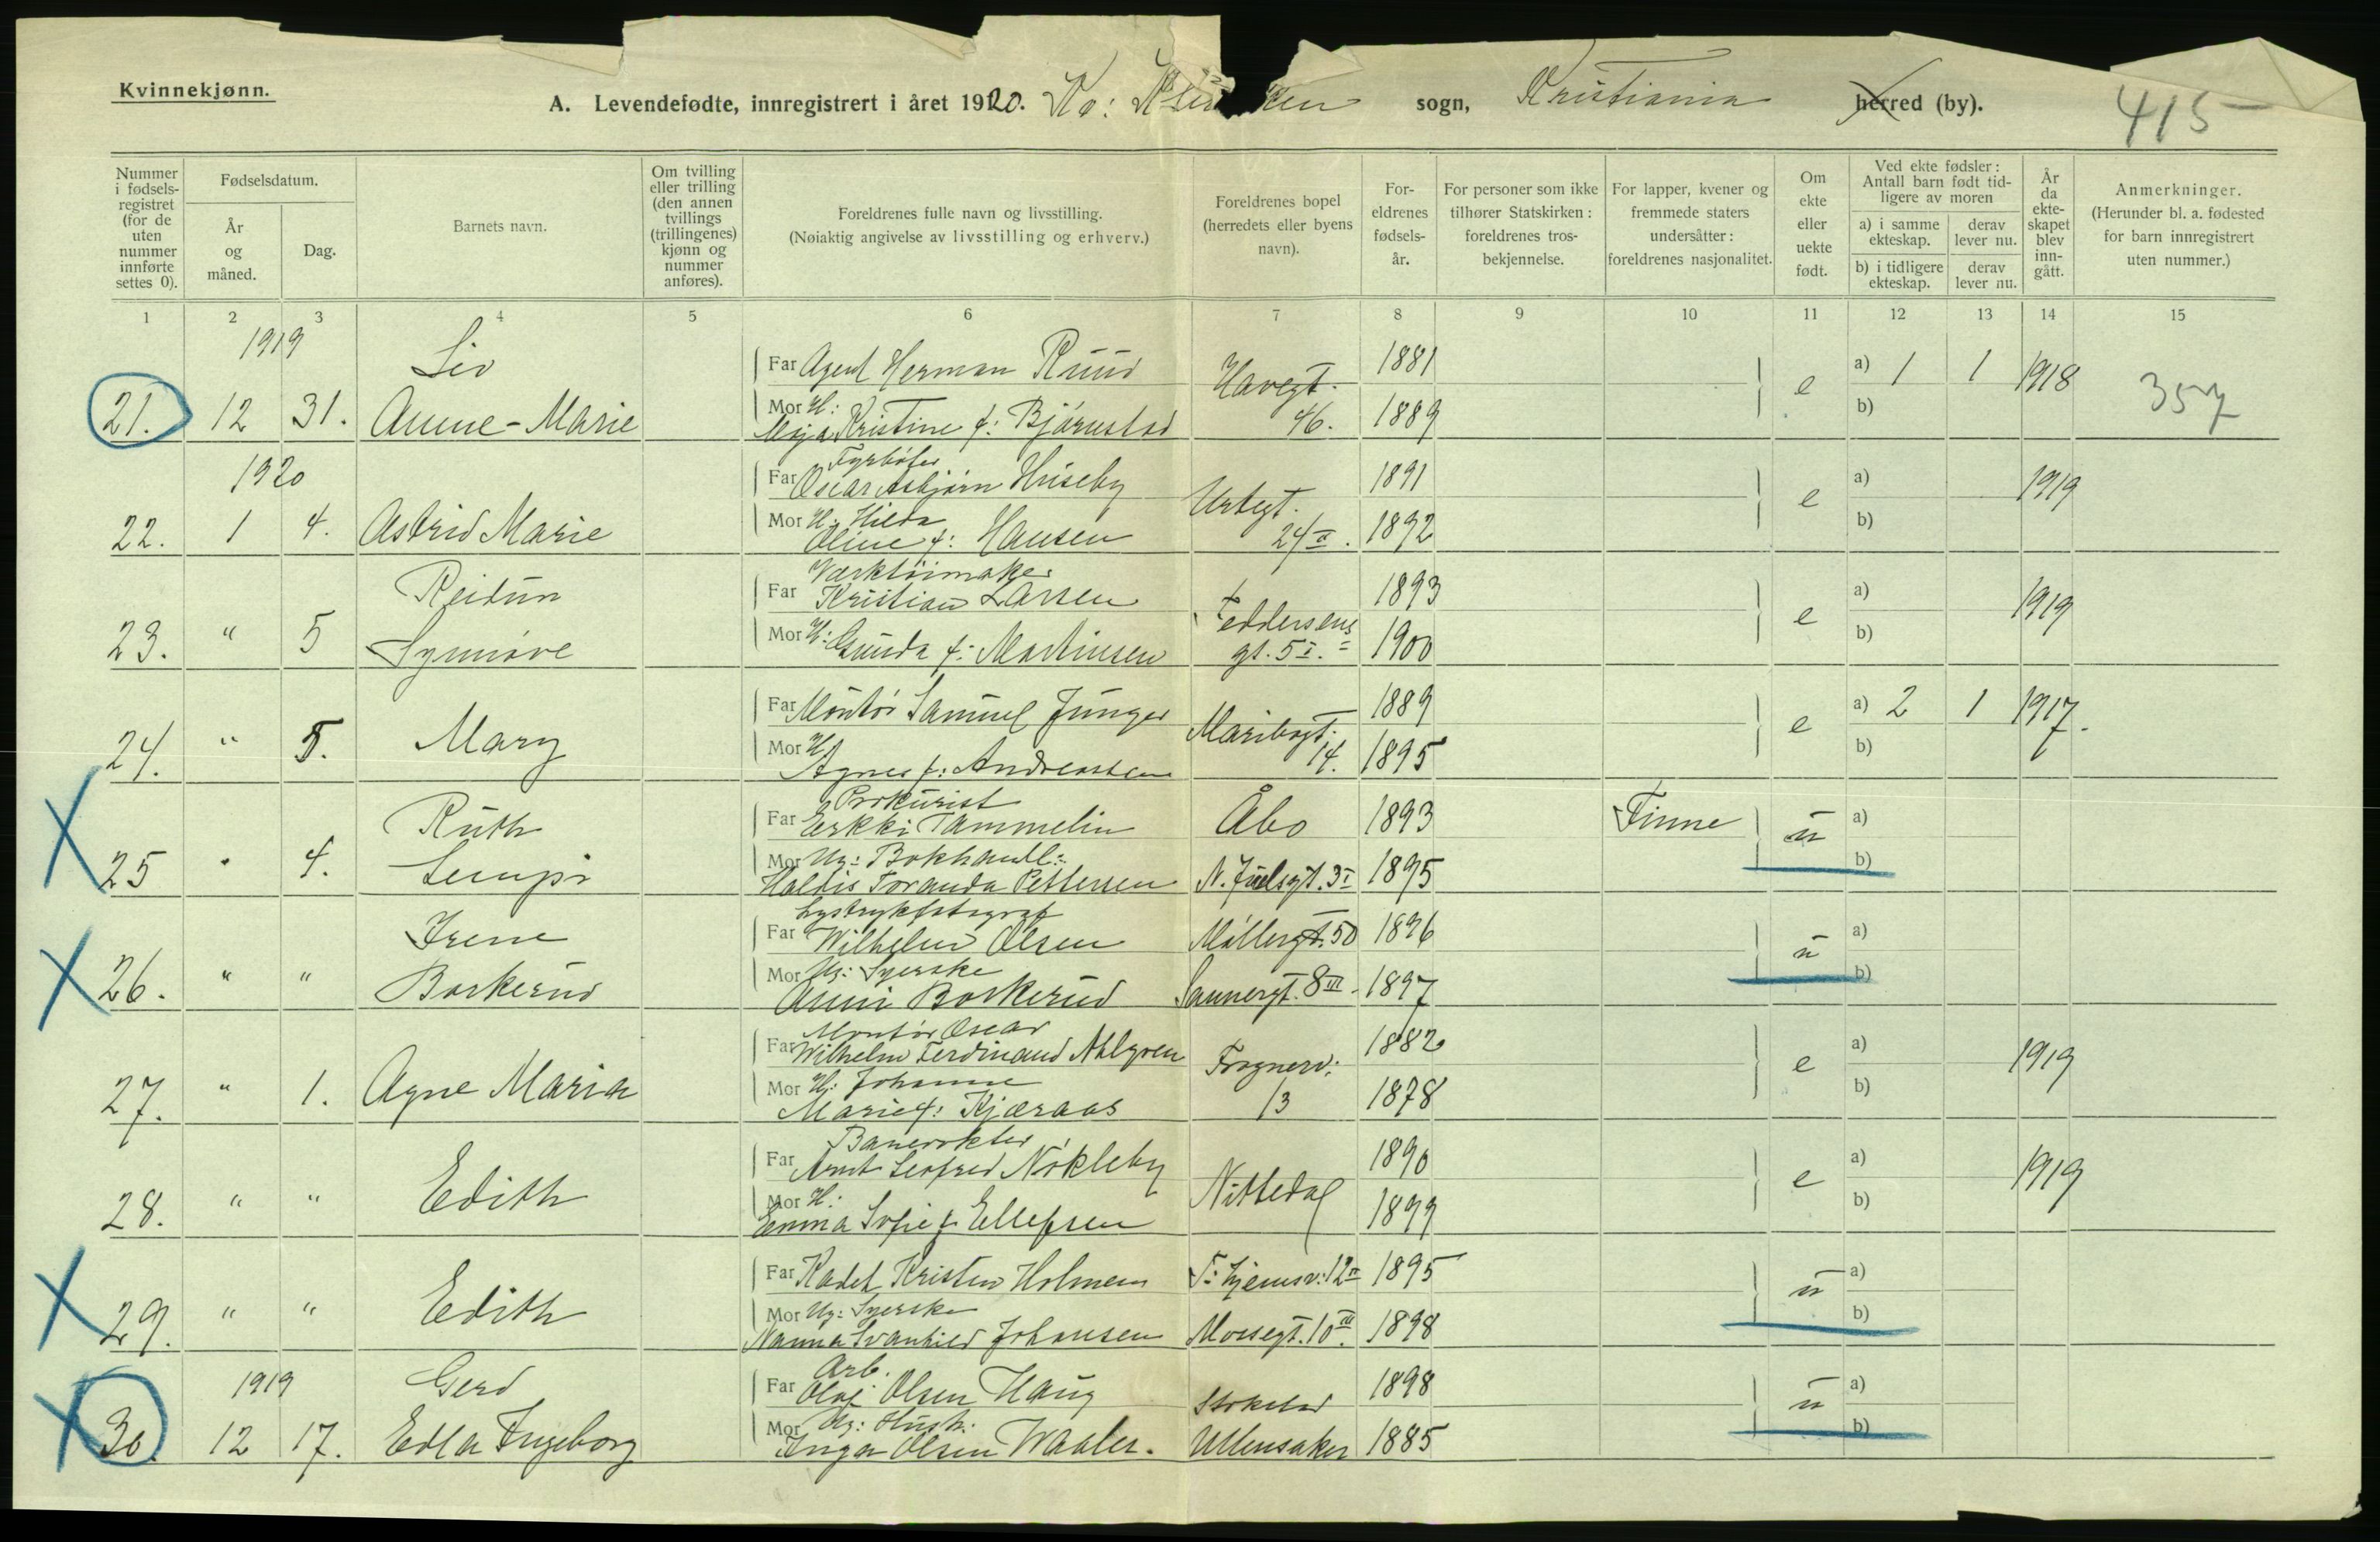 Kvinnekjønn.
A. Levendefødte, innregistrert i året 1920. Kv: sogn, Kristiania herred (by).
415
Nummer i fødsels-registret (for de uten nummer innførte settes 0).
Fødselsdatum.
År og måned.
Dag.
Barnets navn.
Om tvilling eller trilling (den annen tvillings (trillingenes) kjønn og nummer anføres).
Foreldrenes fulle navn og livsstilling.
(Nøiaktig angivelse av livsstilling og erhverv.)
Foreldrenes bopel (herredets eller byens navn).
For-eldrenes fødsels-år.
For personer som ikke tilhører Statskirken: foreldrenes tros-bekjennelse.
For lapper, kvener og fremmede staters undersåtter: foreldrenes nasjonalitet.
Om ekte eller uekte født.
Ved ekte fødsler: Antall barn født tid-ligere av moren
a) i samme ekteskap.
derav lever nu.
b) i tidligere ekteskap.
derav lever nu.
År da ekte-skapet blev inn-gått.
Anmerkninger.
(Herunder bl. a. fødested for barn innregistrert uten nummer.)
1 2 3 4 5 6 7 8 9 10 11 12 13 14 15
1919 Liv Far Agent Herman Ruud Havegt. 1881 e a) 1 1 1918 357
21. 12 31. Anne-Marie Mor H: Maja Kristine f: Bjørnstad 46. 1889 b)
1920 Far Fyrbøter Oscar Asbjørn Huseby Urtegt. 1891 e a) 1919
22. 1 4. Astrid Marie Mor H: Hilda Oline f: Hansen 24 II. 1892 b)
Reidun Far Verktøimaker Kristian Larsen Feddersens 1893 e a) 1919
23. " 5 Synnøve Mor H: Gunda f: Martinsen gt. 5 I. 1900 b)
Far Montør Samuel Junger Maribogt. 1889 e a) 2 1 1917.
24. " 5. Mary Mor H: Agnes f: Andreassen 14. 1895 b)
Ruth Far Prokurist Erkki Tammelin Åbo 1893 Finne u a)
25 " 4. Lempi Mor Ug: Bokhandl: Haldis Toranda Pettersen N. Juelsgt. 3 I 1895 b)
Irene Far Lystrykfotograf Wilhelm Olsen Møllergt. 50 1896 u a)
26. " " Borkerud Mor Ug: Syerske Anni Borkerud Sannergt. 8 III 1897 b)
Far Montør Oscar Wilhelm Ferdinand Ahlgren Frognerv: 1882 e a) 1919
27. " 1. Agne Maria Mor H: Johanne Marie f: Kjæraas 13 1878 b)
Far Banevokter Arnt Leofred Nøkleby Nittedal 1890 e a) 1919
28. " " Edith Mor H: Emma Sofie f Ellefsen 1899 b)
Far Kadet Kristen Holmen T: hjemsv: 12 II 1895 u a)
29. " " Edith Mor Ug: Syerske Nanna Svanhild Johansen Mossegt. 10 III. 1898 b)
1919 Gerd Far Arb. Olaf Olsen Haug 1898 u a)
30. 12 17. Edla Ingeborg Mor Ug: Hush. Inga Olsen Waaler. Ullensaker 1885 b)